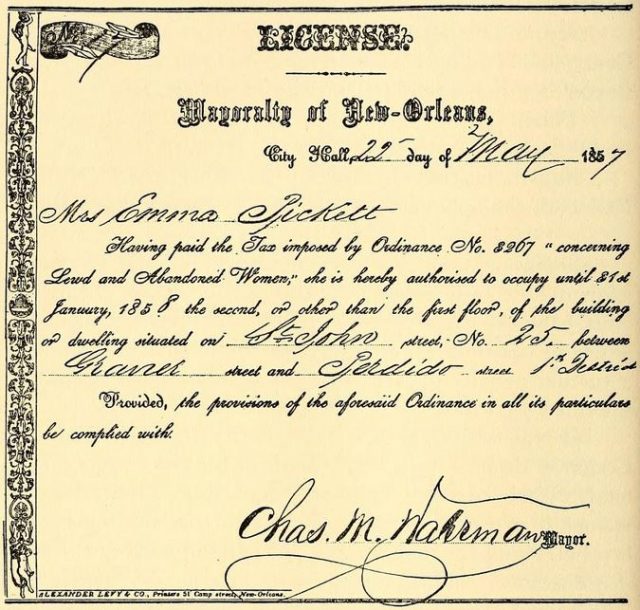 No 1
LICENSE.
Mayoralty of New-Orleans,
City Hall, 22 day of May 1857
Mrs Emma Pickett
Having paid the Tax imposed by Ordinance No. 3267 "concerning
Lewd and Abandoned Women," she is hereby authorised to occupy until 31st
January, 1858 the second, or other than the first floor, of the building
or dwelling situated on St. John street, No. 25. between
Gravier street and Perdido street 1st District
Provided, the provisions of the aforesaid Ordinance in all its particulars
be complied with.
Chas. M. Waterman Mayor.
ALEXANDER LEVY & CO., Printers 51 Camp street, New-Orleans.